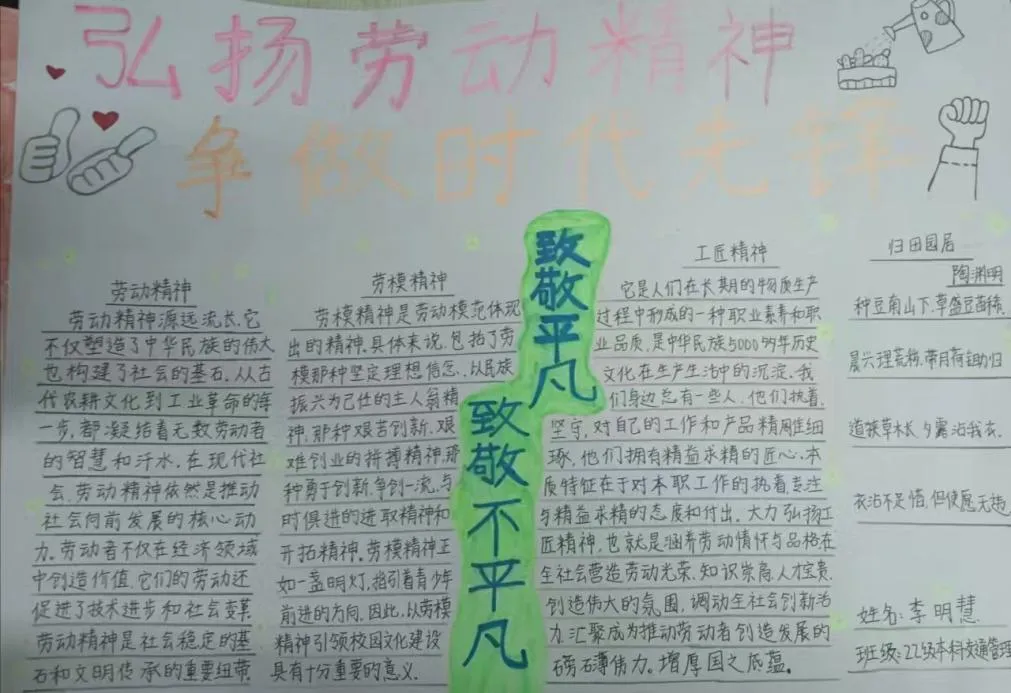 弘扬劳动精神
争做时代先锋
劳动精神
劳动精神源远流长,它
不仅塑造了中华民族的伟大
也构建了社会的基石.从古
代农耕文化到工业革命的每
一步,都凝结着无数劳动者
的智慧和汗水.在现代社
会,劳动精神依然是推动
社会向前发展的核心动
力.劳动者不仅在经济领域
中创造价值,它们的劳动还
促进了技术进步和社会变革.
劳动精神是社会稳定的基
石和文明传承的重要纽带.
劳模精神
劳模精神是劳动模范体现
出的精神.具体来说,包括了劳
模那种坚定理想信念,以民族
振兴为己任的主人翁精
神,那种艰苦创新、艰
难创业的拼搏精神,那
种勇于创新,争创一流,与
时俱进的进取精神和
开拓精神.劳模精神正
如一盏明灯,指引着青少年
前进的方向,因此,以劳模
精神引领校园文化建设
具有十分重要的意义.
致敬平凡
致敬不平凡
工匠精神
它是人们在长期的物质生产
过程中形成的一种职业素养和职
业品质,是中华民族5000多年历史
文化在生产生活中的沉淀.我
们身边总有一些人,他们执着、
坚守,对自己的工作和产品精雕细
琢,他们拥有精益求精的匠心.本
质特征在于对本职工作的执着,专注
与精益求精的态度和付出.大力弘扬工
匠精神,也就是涵养劳动情怀与品格,在
全社会营造劳动光荣、知识崇高、人才宝贵、
创造伟大的氛围,调动全社会创新活
力,汇聚成为推动劳动者创造发展的
磅礴伟力。增厚国之底蕴。
归田园居
陶渊明
种豆南山下,草盛豆苗稀.
晨兴理荒秽,带月荷锄归
道狭草木长,夕露沾我衣.
衣沾不足惜,但使愿无违
姓名:李明慧
班级:22级本科交通管理